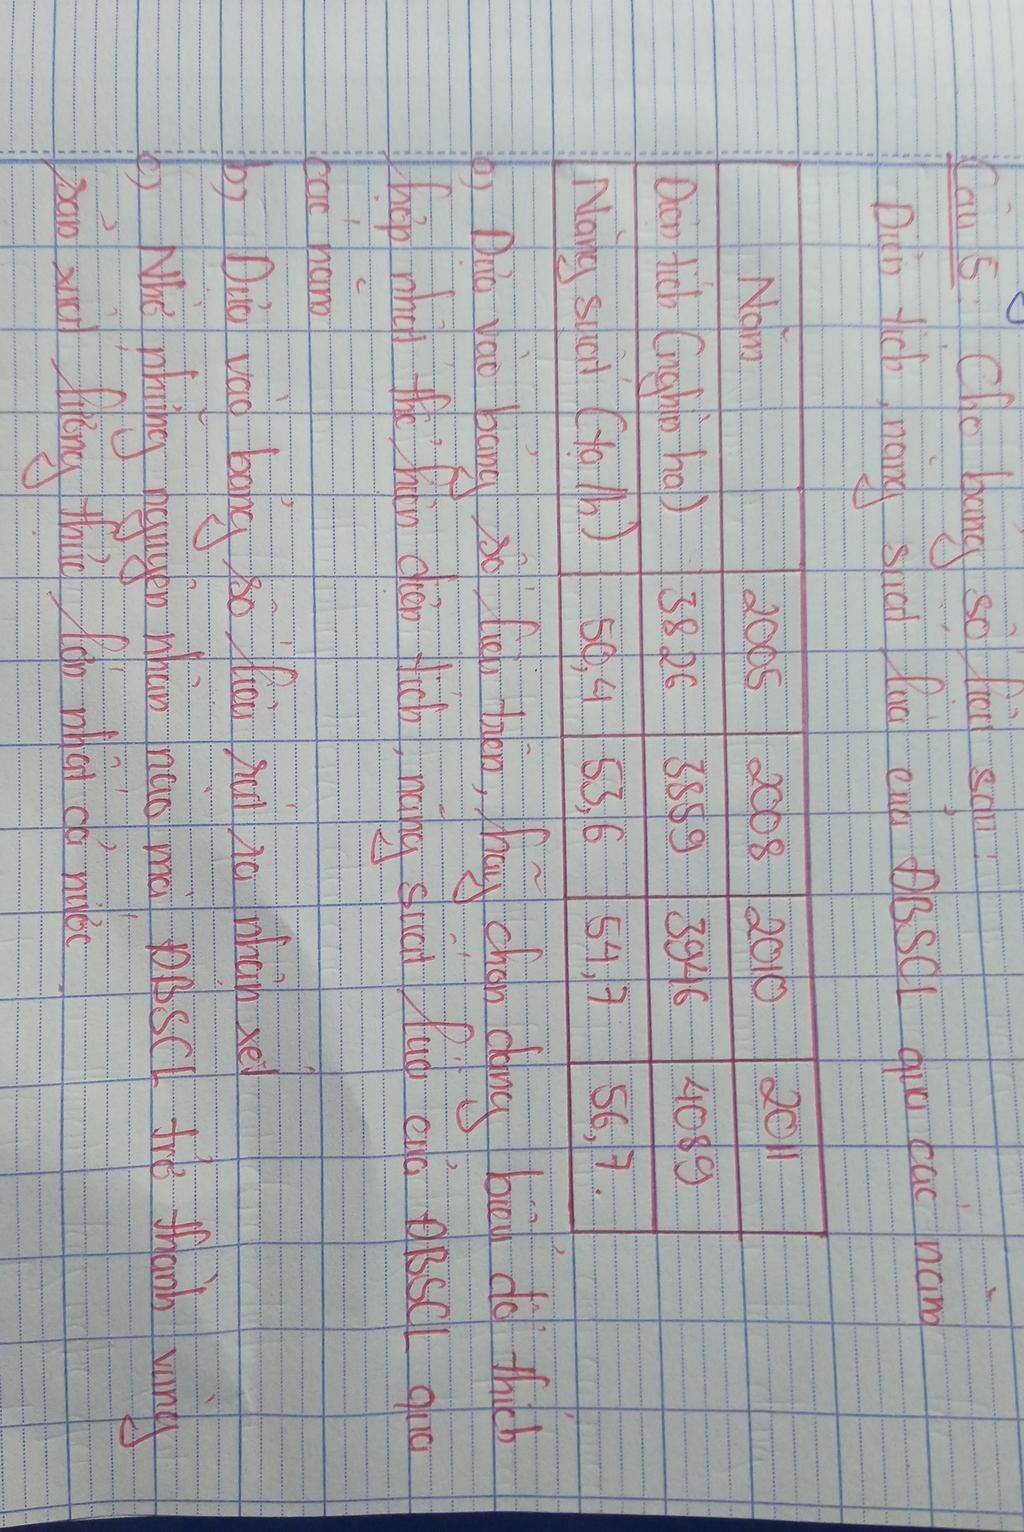 Câu 5: Cho bảng số liệu sau:
Diện tích, năng suất lúa của ĐBSCL qua các năm
Năm 2005 2008 2010 2011
Diện tích (nghìn ha) 3826 3859 3946 4089
Năng suất (tạ/h) 50,4 53,6 54,7 56,7.
a) Dựa vào bảng số liệu trên, hãy chọn dạng biểu đồ thích
hợp nhất thể hiện diện tích, năng suất lúa của ĐBSCL qua
các năm
b) Dựa vào bảng số liệu rút ra nhận xét
c) Nhờ những nguyên nhân nào mà ĐBSCL trở thành vùng
sản xuất lương thực lớn nhất cả nước.